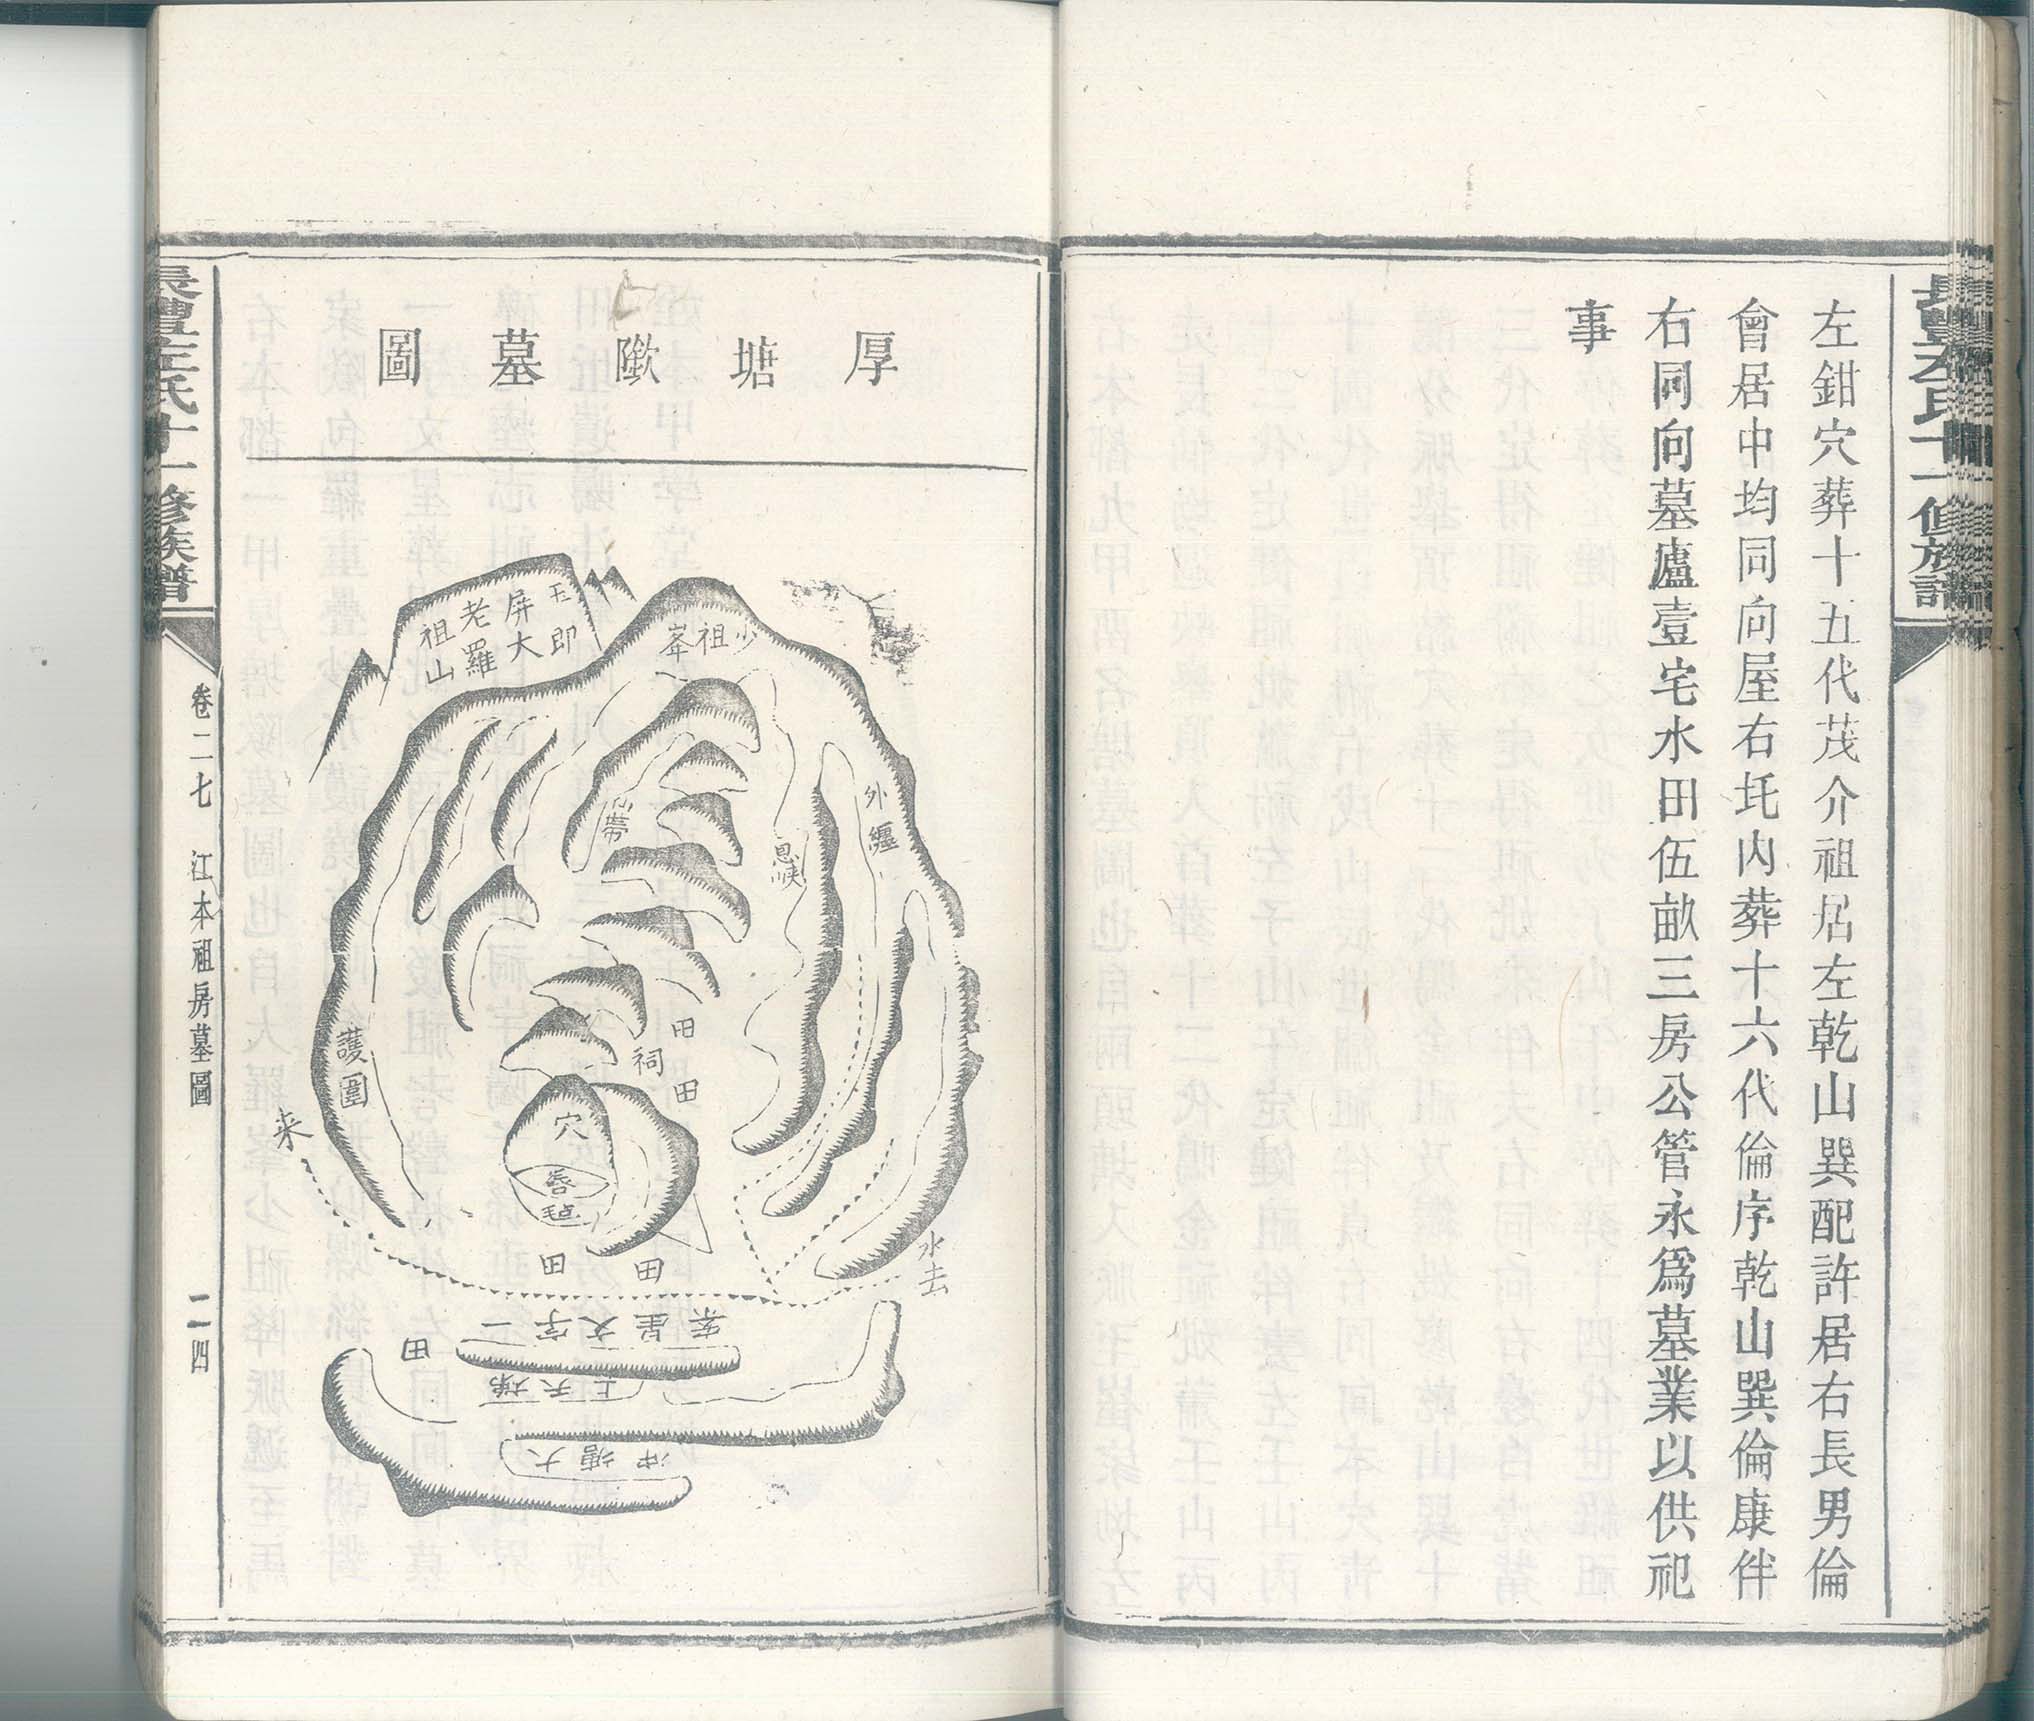 長豐左氏十一修族譜
左鉗穴葬十五代茂介祖居左乾山巽配許居右長男倫
會居中均同向屋右圫內葬十六代倫序乾山巽倫康伴
右同向墓廬壹宅水田伍畝三房公管永爲墓業以供祀
事
厚塘歞墓圖
玉屏即大老羅祖山
少祖峯
外纏
帶
祠
田
田
穴
唇
毡
護圍
来
水去
田
田
一字文星案
田
上天梯
大塘冲
長豐左氏十一修族譜
卷二七 江本祖房墓圖 二四